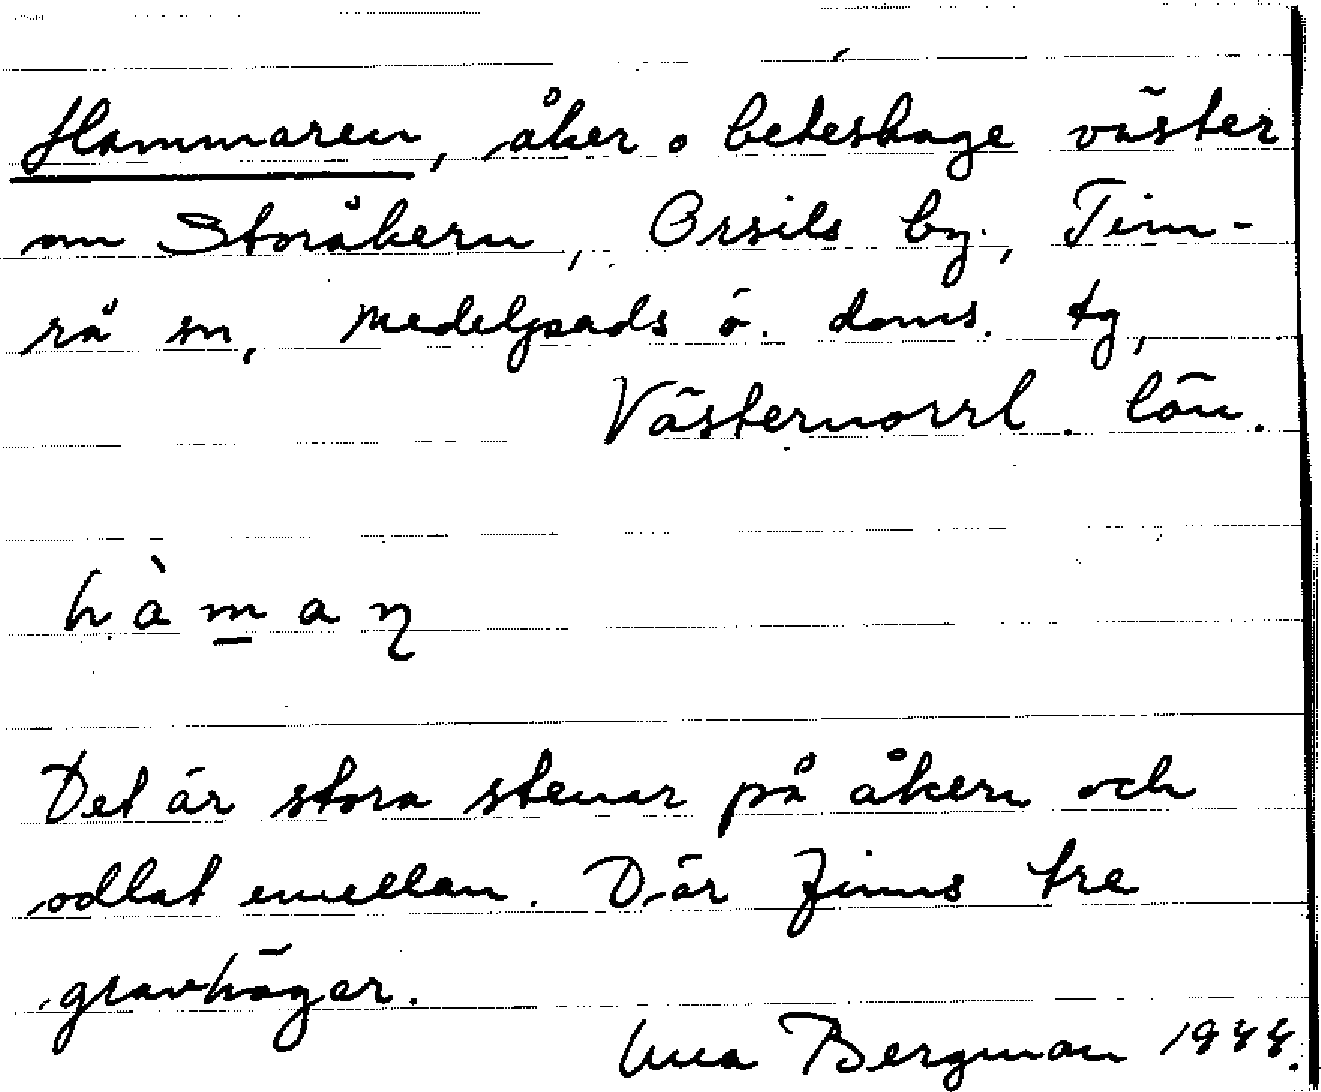 Hammaren, åker o beteshage väster
om Storåkern, Orsils by, Tim-
rå sn, Medelpads ö. doms. tg,
Västernorrl. län.
hàm̲aɳ
Det är stora stenar på åkern och
odlat emellan. Där finns tre
gravhögar.
Bergman